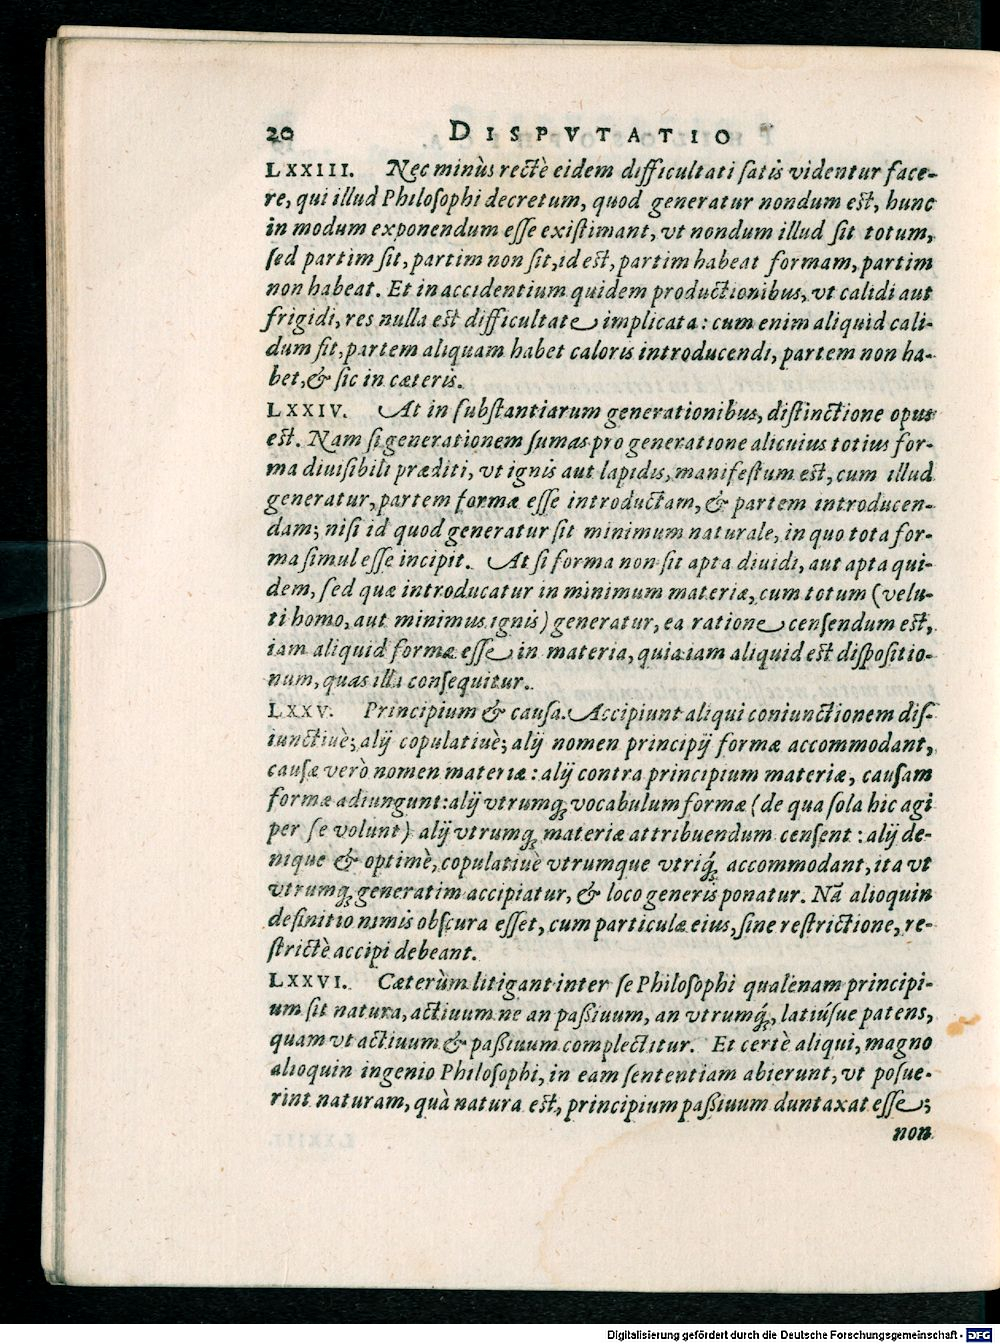 20 DISPVTATIO
LXXIII. Nec minùs rectè eidem difficultati satis videntur face-
re, qui illud Philosophi decretum, quod generatur nondum est, hunc
in modum exponendum esse existimant, vt nondum illud sit totum,
sed partim sit, partim non sit, id est, partim habeat formam, partim
non habeat. Et in accidentium quidem productionibus, vt calidi aut
frigidi, res nulla est difficultate implicata: cum enim aliquid cali-
dum fit, partem aliquam habet caloris introducendi, partem non ha-
bet, & sic in cæteris.
LXXIV. At in substantiarum generationibus, distinctione opus
est. Nam si generationem sumas pro generatione alicuius totius for-
ma diuisibili præditi, vt ignis aut lapidis, manifestum est, cum illud
generatur, partem formæ esse introductam, & partem introducen-
dam; nisi id quod generatur sit minimum naturale, in quo tota for-
ma simul esse incipit. At si forma non sit apta diuidi, aut apta qui-
dem, sed quæ introducatur in minimum materiæ, cum totum (velu-
ti homo, aut minimus ignis) generatur, ea ratione censendum est,
iam aliquid formæ esse in materia, quia iam aliquid est dispositio-
num, quas illa consequitur.
LXXV. Principium & causa. Accipiunt aliqui coniunctionem dis-
iunctiuè; alij copulatiuè; alij nomen principij formæ accommodant,
causæ verò nomen materiæ: alij contra principium materiæ, causam
formæ adiungunt: alij vtrumq́; vocabulum formæ (de qua sola hic agi
per se volunt) alij vtrumq́; materiæ attribuendum censent: alij de-
nique & optimè, copulatiuè vtrumque vtriq́; accommodant, ita vt
vtrumq́; generatim accipiatur, & loco generis ponatur. Nã alioquin
definitio nimis obscura esset, cum particulæ eius, sine restrictione, re-
strictè accipi debeant.
LXXVI. Cæterùm litigant inter se Philosophi qualénam principi-
um sit natura, actiuum ne an passiuum, an vtrumq́;, latiúsue patens,
quam vt actiuum & passiuum complectitur. Et certè aliqui, magno
alioquin ingenio Philosophi, in eam sententiam abierunt, vt posue-
rint naturam, quà natura est, principium passiuum duntaxat esse;
non
Digitalisierung gefördert durch die Deutsche Forschungsgemeinschaft - DFG